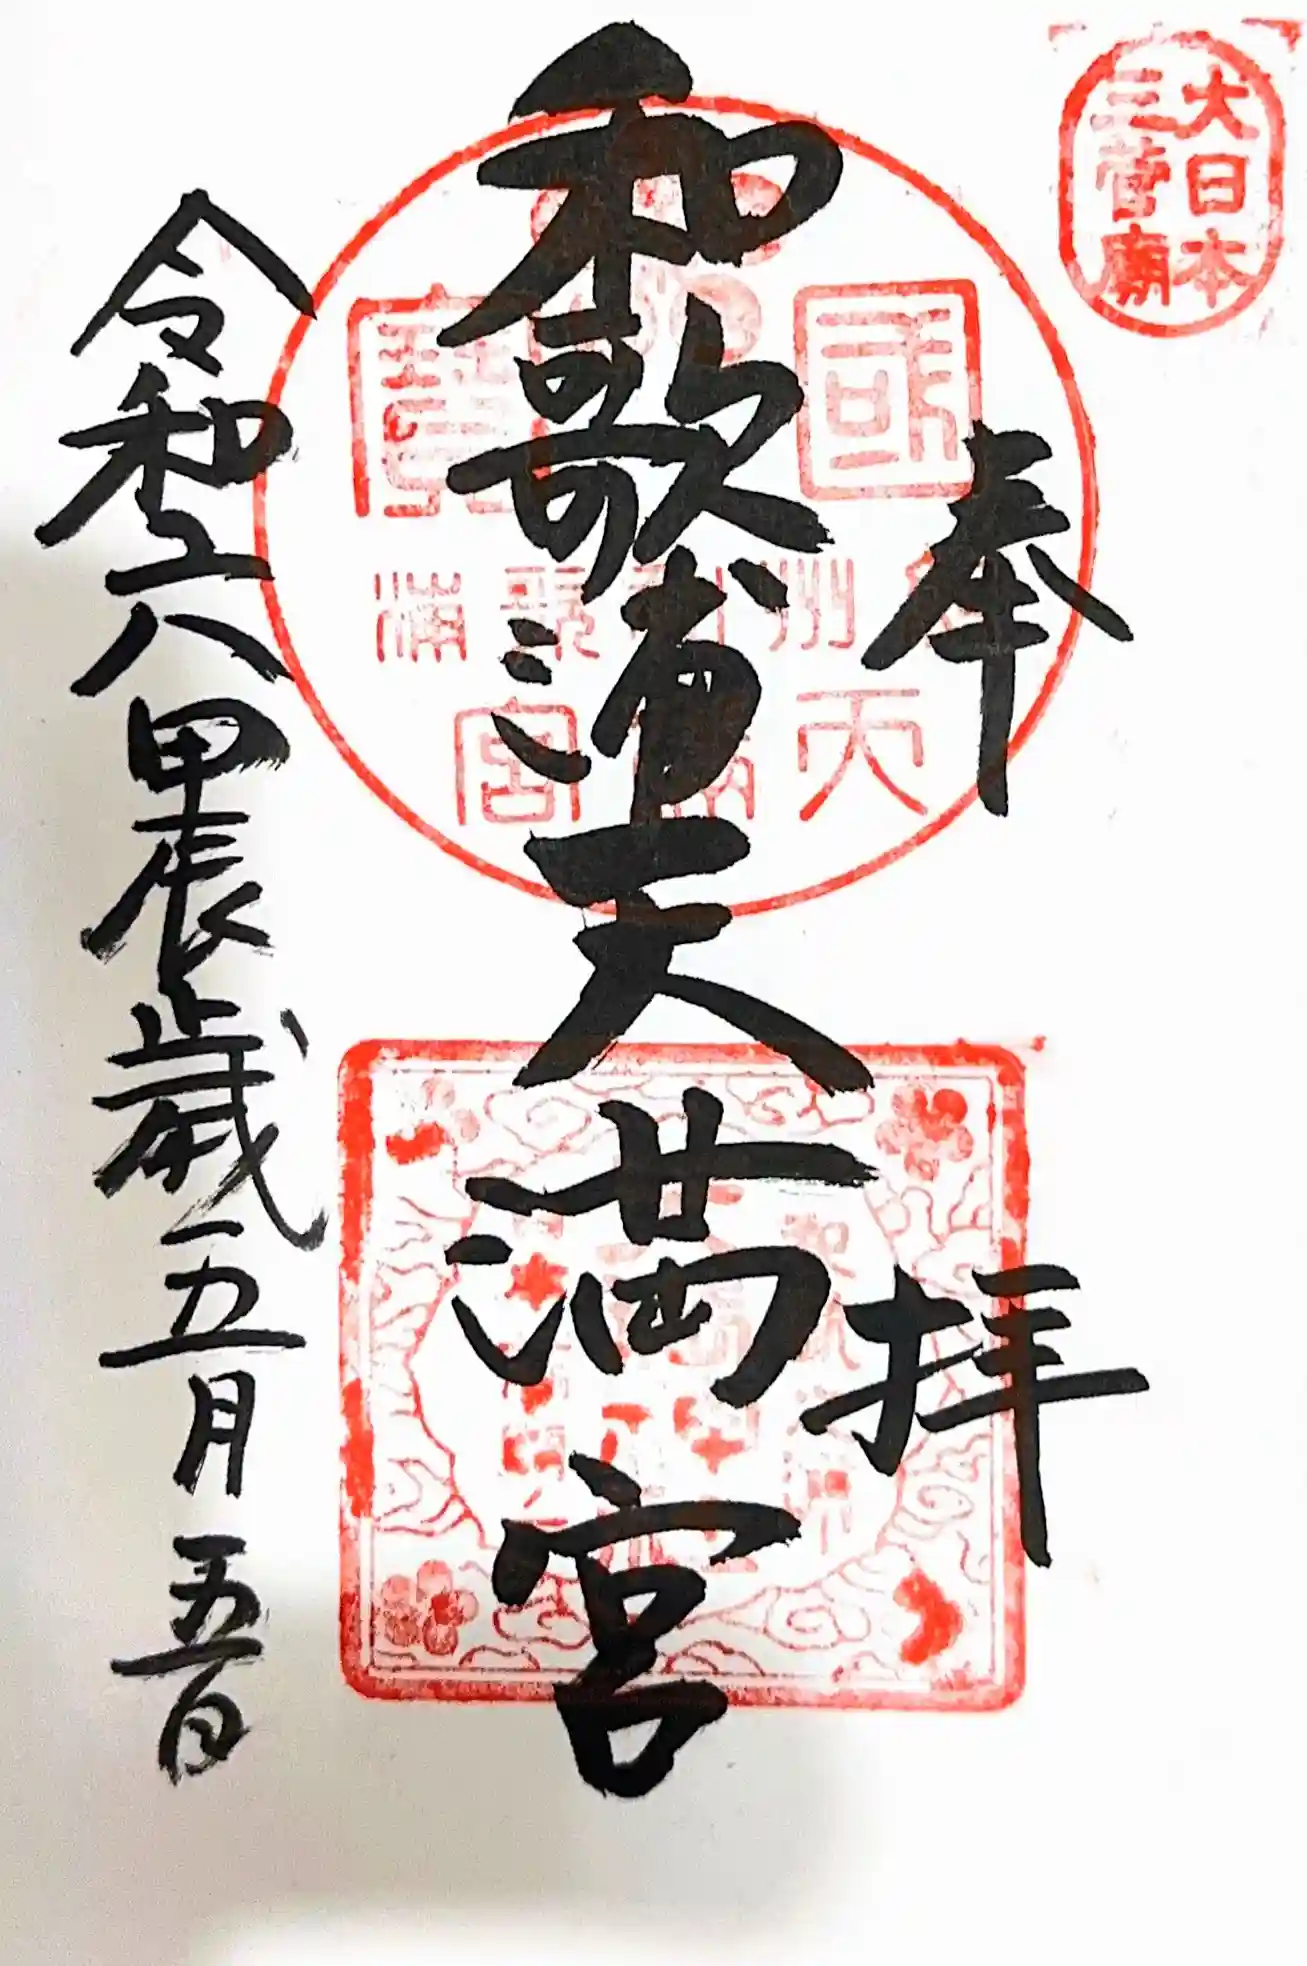 大日本
三菅廟
奉拝
和歌浦天満宮
國寶
州
浦
天満宮
令和六甲辰歳五月五日